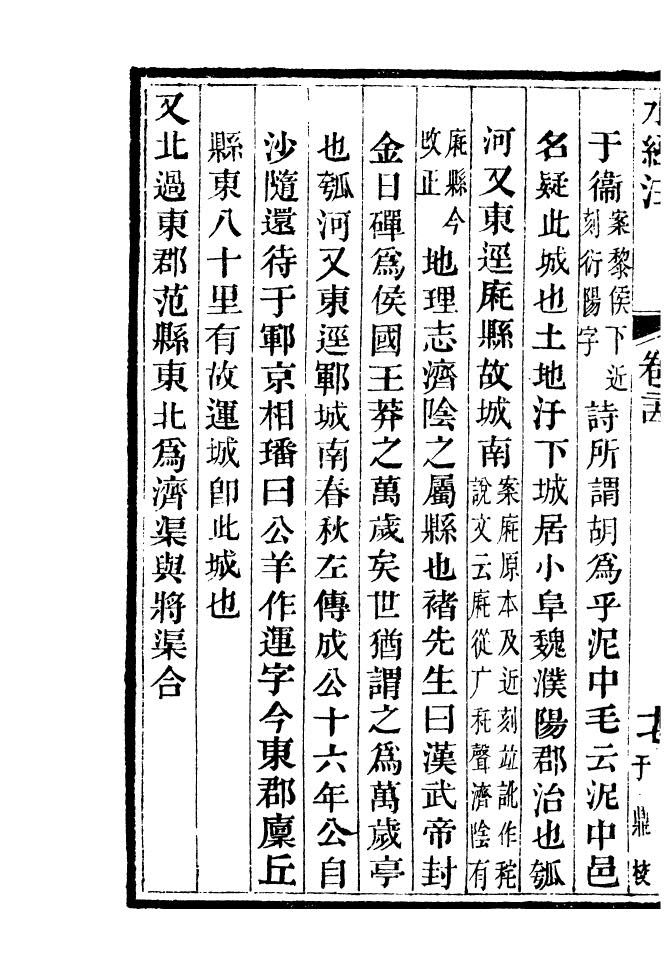 水經注 卷二十四 七 于鼎校
于衞案黎侯下近刻衍陽字詩所謂胡爲乎泥中毛云泥中邑
名疑此城也土地汙下城居小阜魏濮陽郡治也瓠
河又東逕㢉縣故城南案㢉原本及近刻竝訛作秺說文云㢉從广秅聲濟陰有
㢉縣今改正地理志濟陰之屬縣也褚先生曰漢武帝封
金日磾爲侯國王莽之萬歲矣世猶謂之爲萬歲亭
也瓠河又東逕鄆城南春秋左傳成公十六年公自
沙隨還待于鄆京相璠曰公羊作運字今東郡廩丘
縣東八十里有故運城卽此城也
又北過東郡范縣東北爲濟渠與將渠合